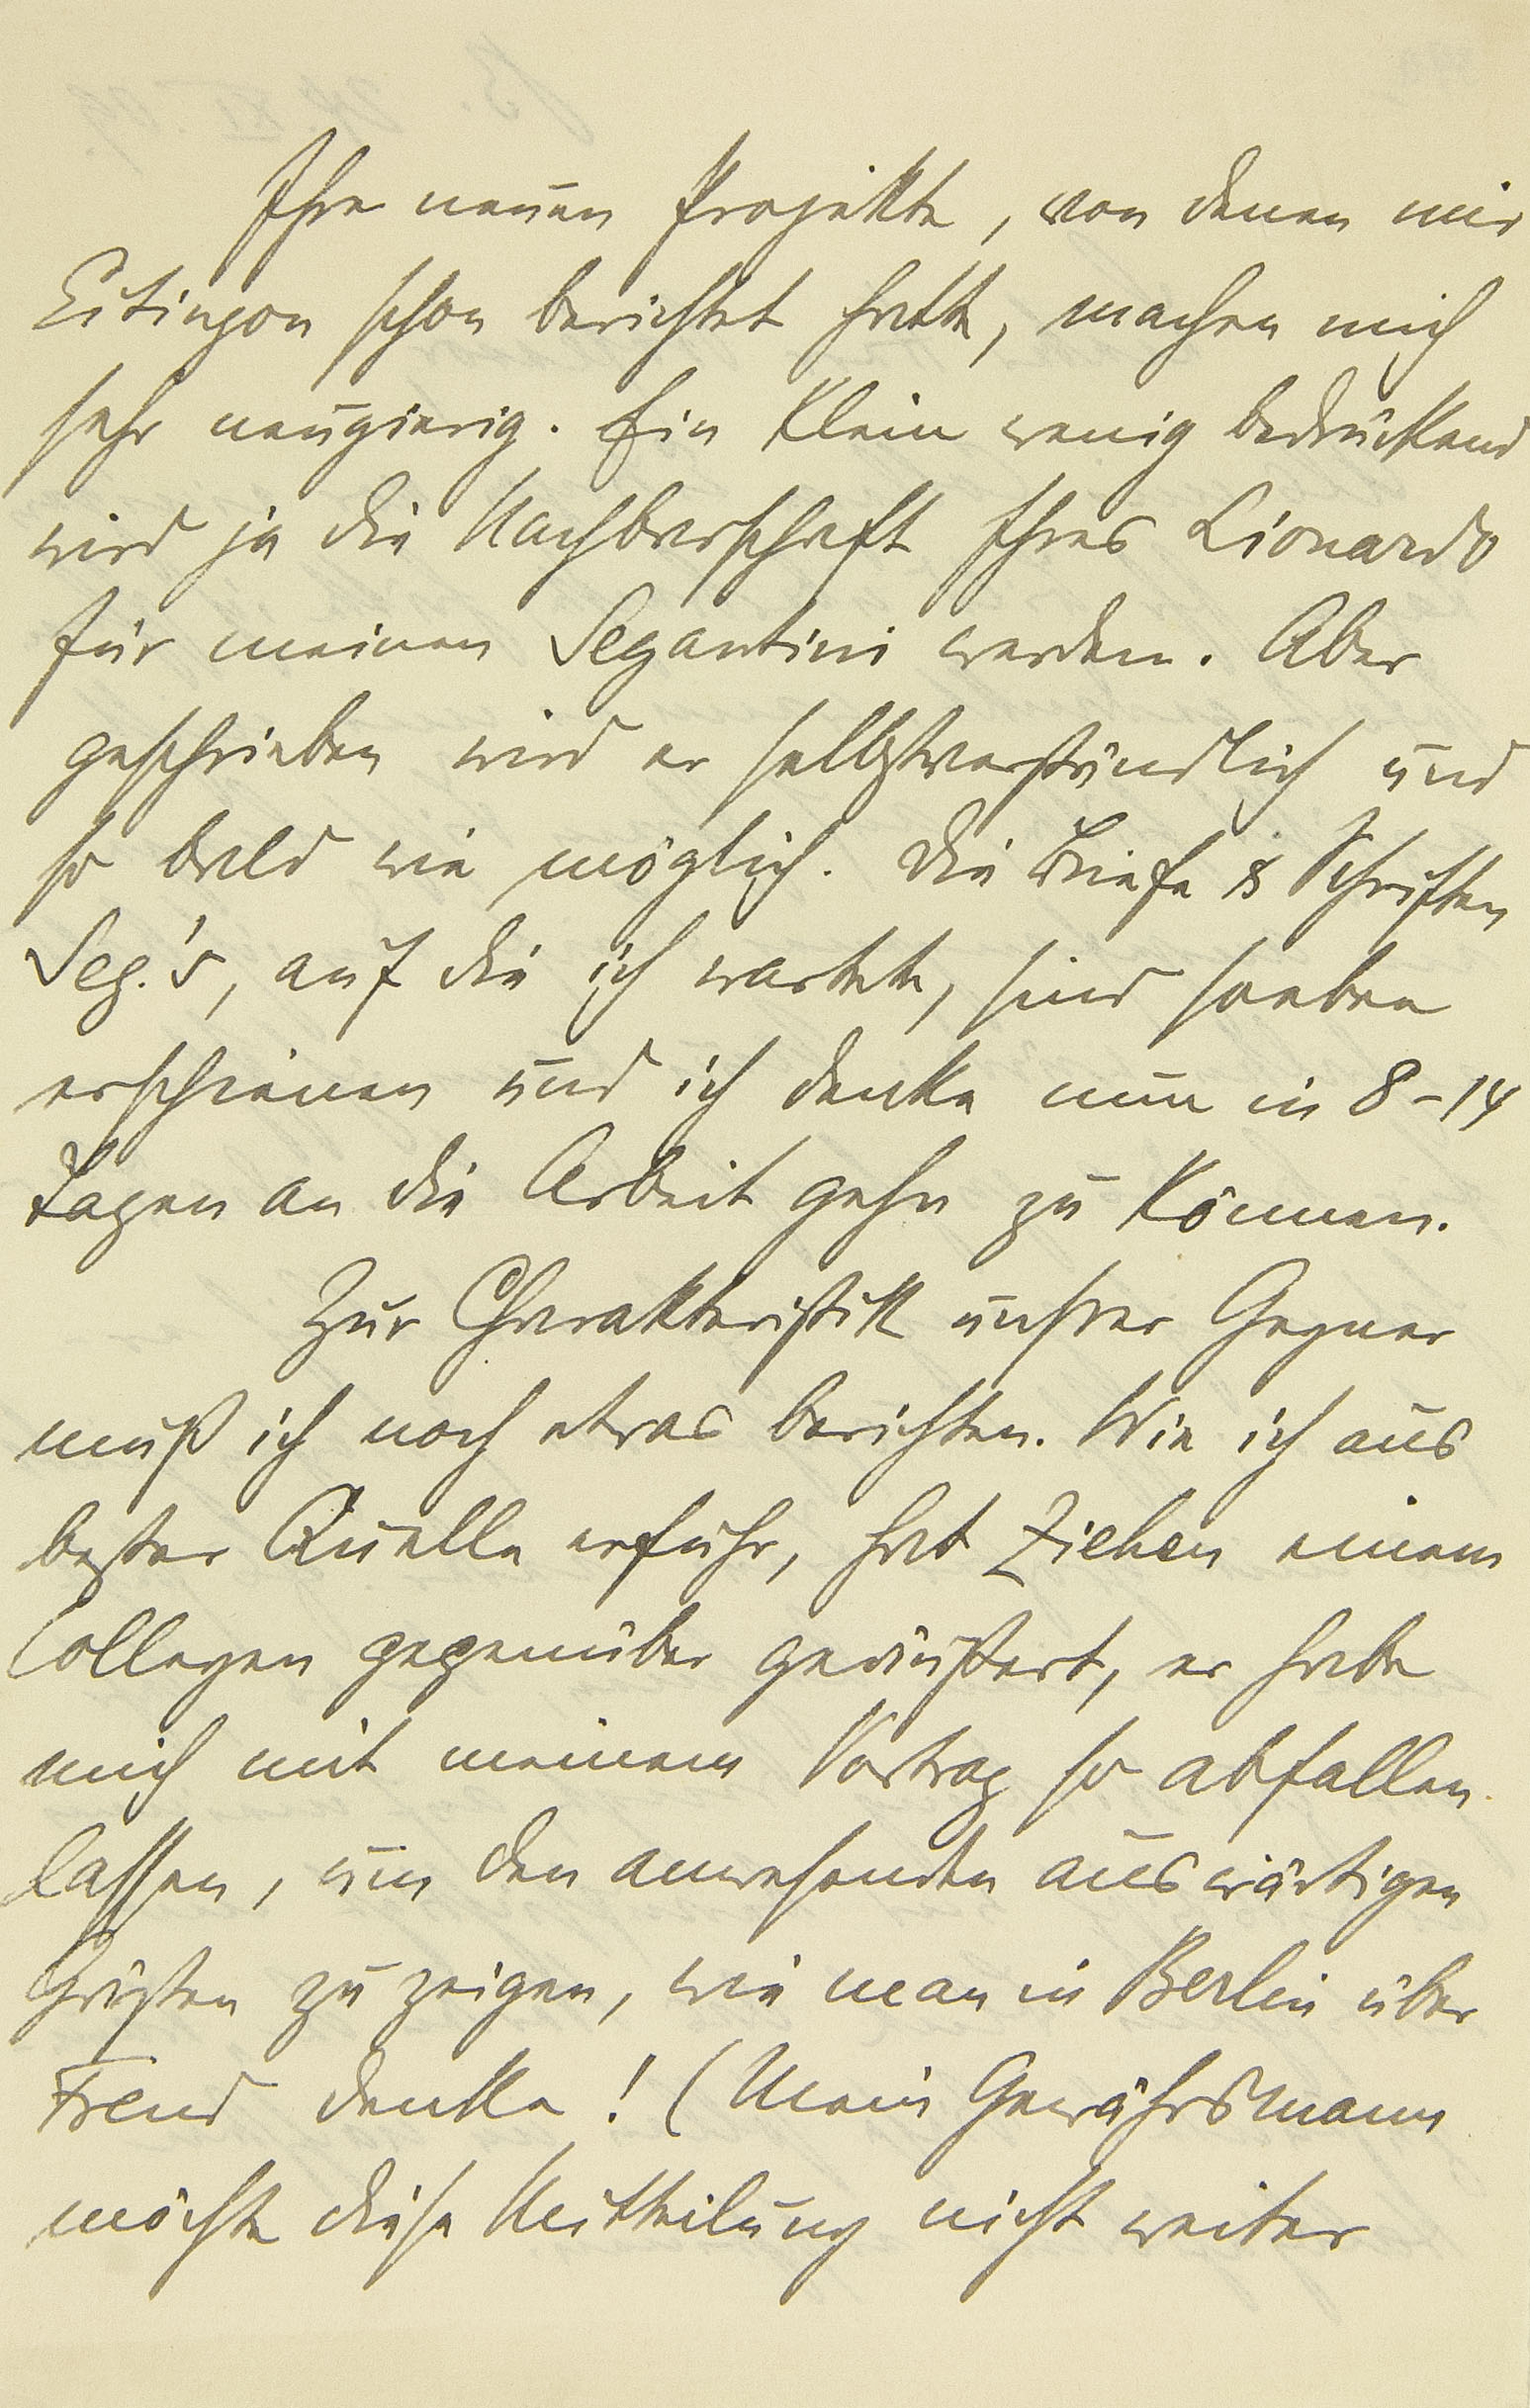 Ihre neuen Projekte, von denen mir
Eitingon schon berichtet hatte, machen mich
sehr neugierig. Ein klein wenig bedrückend
wird ja die Nachbarschaft Ihres Lionardo
für meinen Segantini werden. Aber
geschrieben wird er selbstverständlich und
so bald wie möglich. Die Briefe & Schriften
Seg.'s, auf die ich wartete, sind soeben
erschienen und ich denke nun in 8–14
Tagen an die Arbeit gehn zu können.
Zur Charakteristik unsrer Gegner
muß ich noch etwas berichten. Wie ich aus
bester Quelle erfuhr, hat Ziehen einem
Collegen gegenüber geäußert, er habe
mich mit meinem Vortrag so abfallen
lassen, um den anwesenden auswärtigen
Gästen zu zeigen, wie man in Berlin über
Freud denke! (Mein Gewährsmann
möchte diese Mittheilung nicht weiter